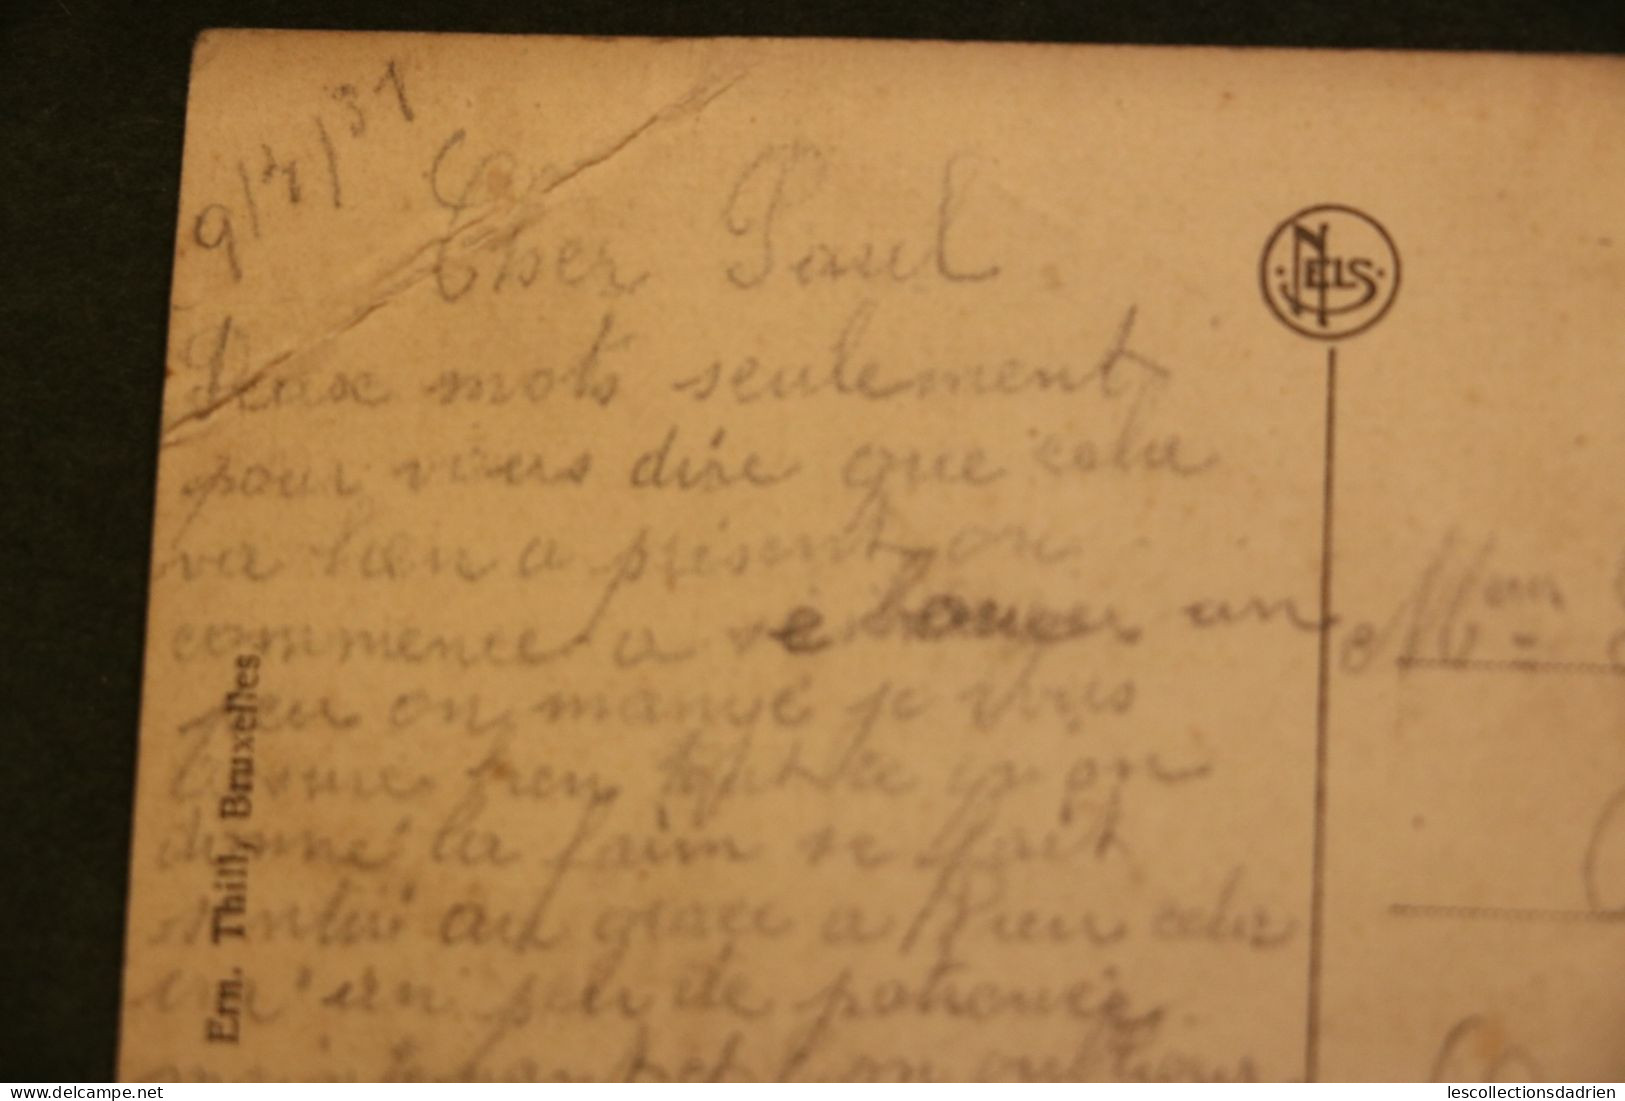 9/7/37
Cher Paul
Deux mots seulement
pour vous dire que cela
va bien a present on
commence a re bouger un
peu on mange je vous
bien tout ce qu on
donne la faim se fait
sentir au grace a Dieu cela
va un peu de patience
NELS
Ern. Thill, Bruxelles
Mme
lescollectionsdadrien